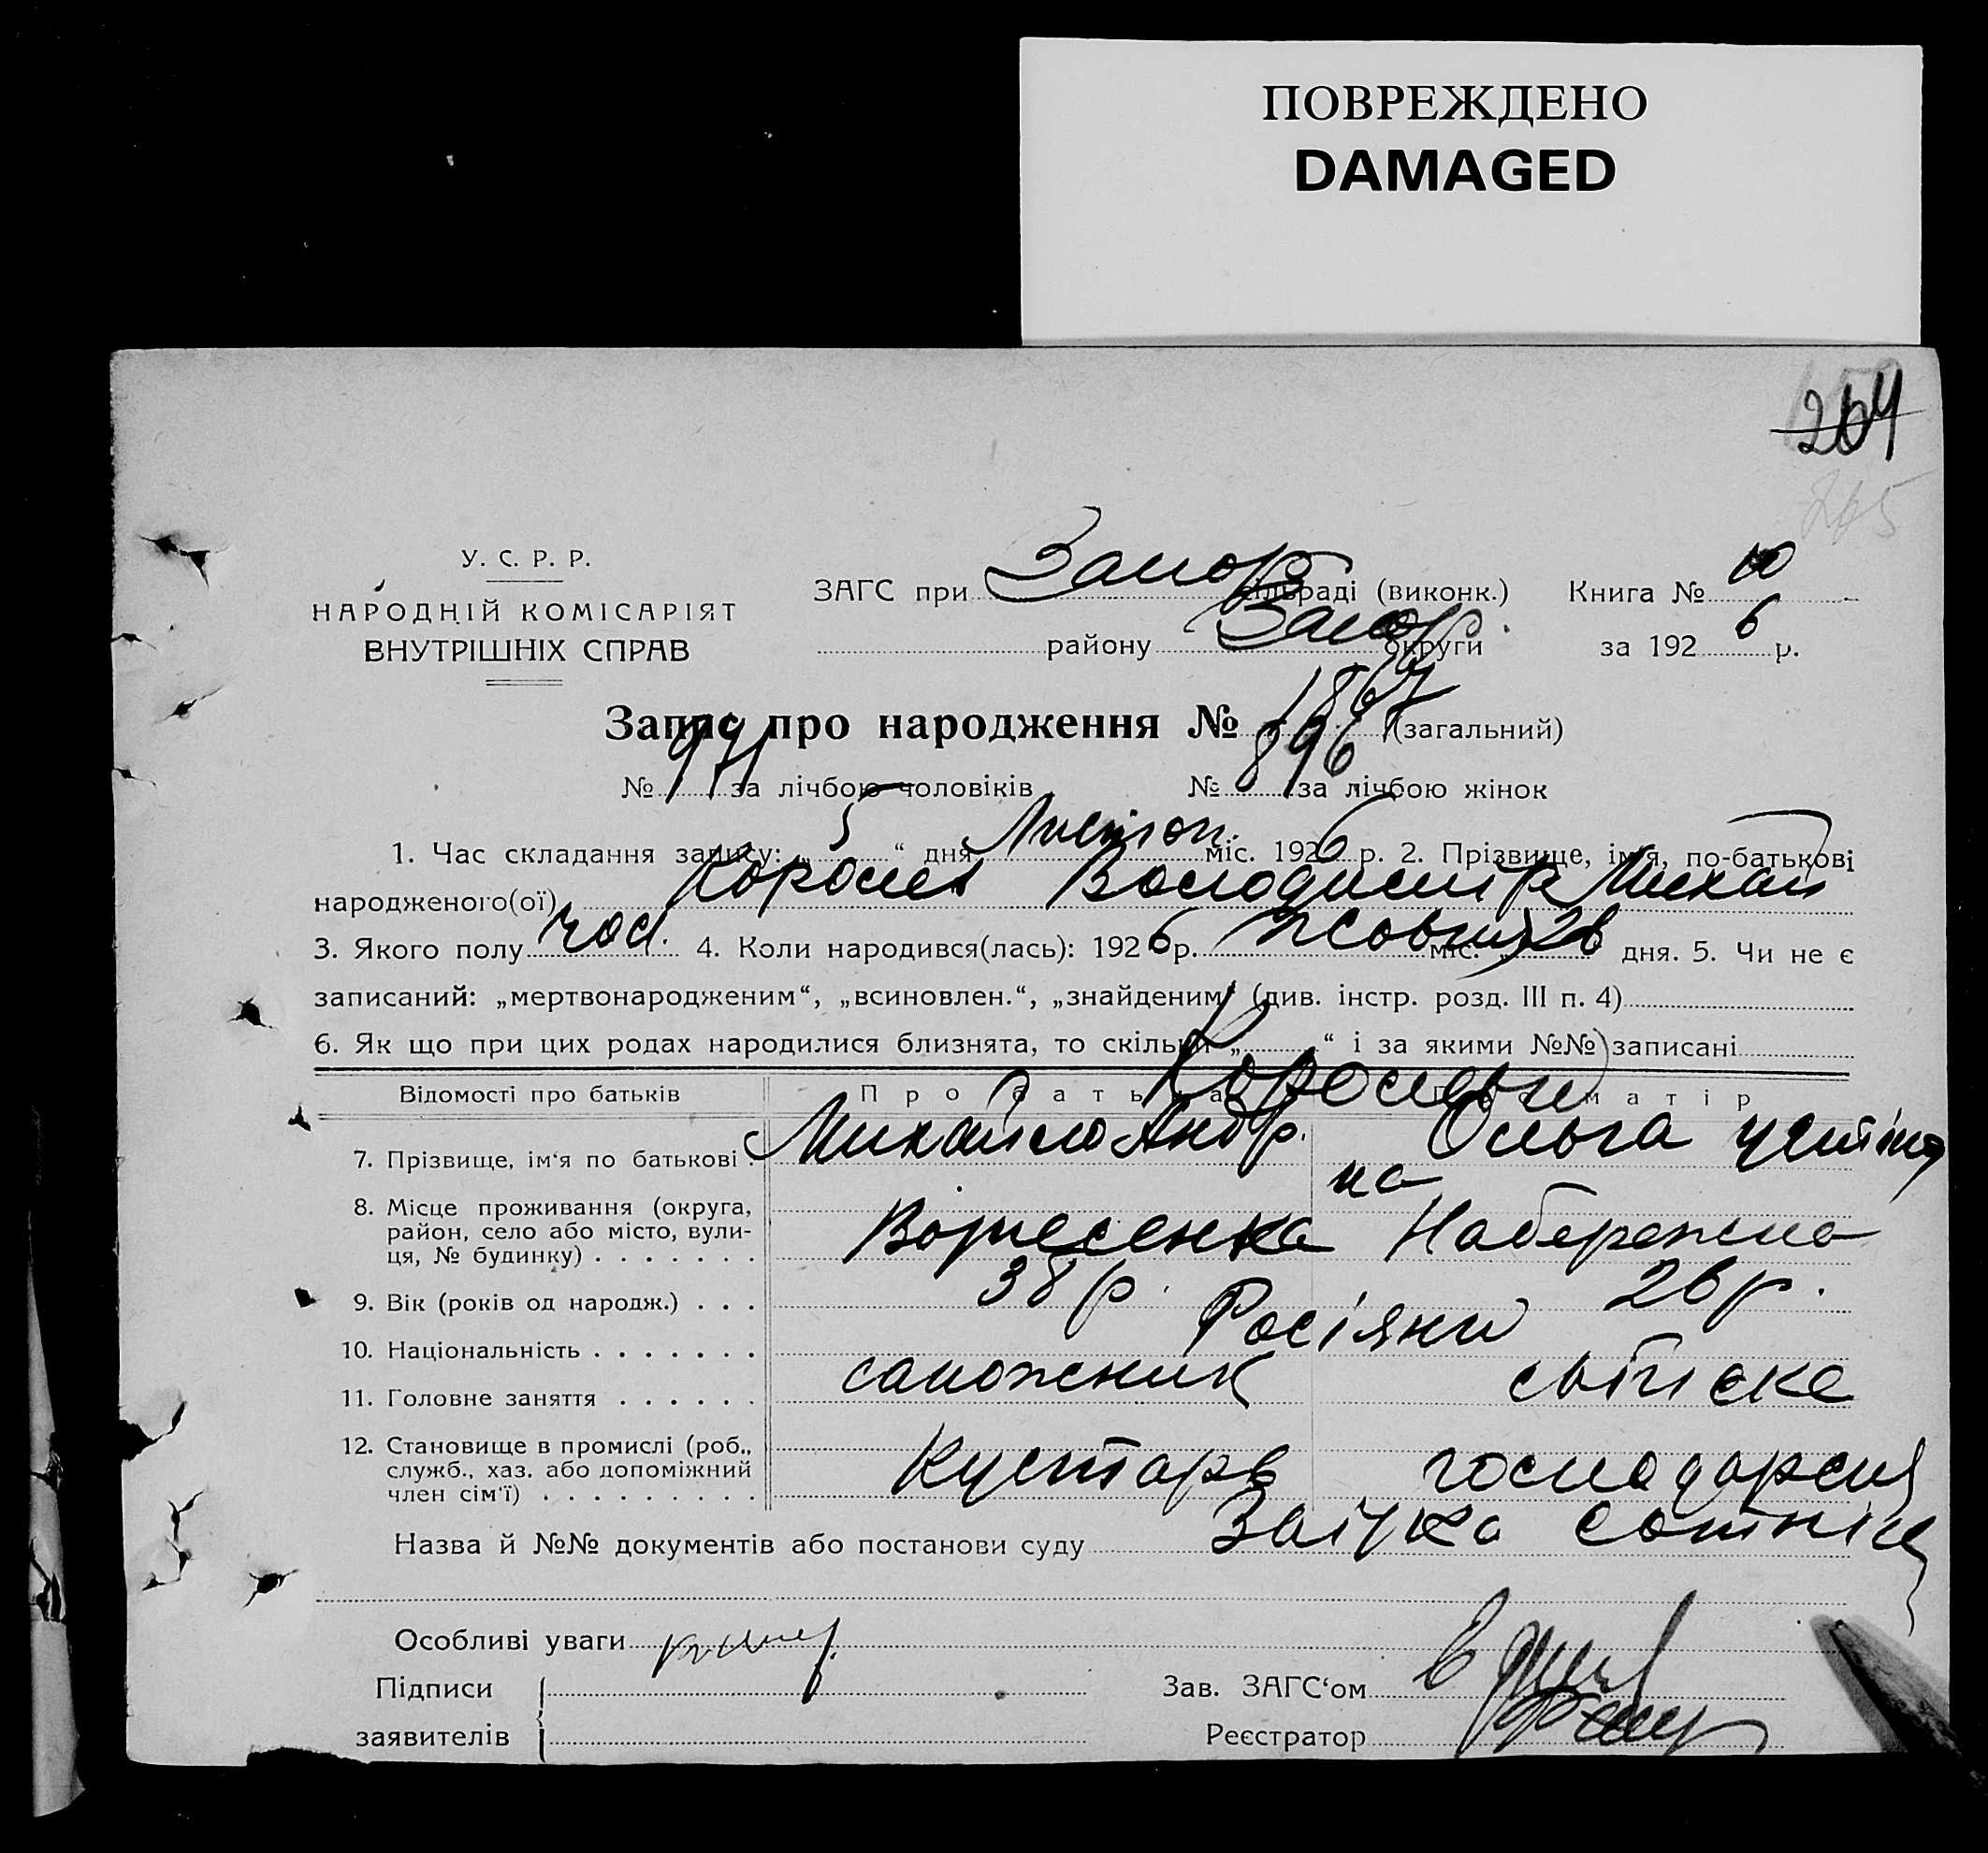 ПОВРЕЖДЕНО
DAMAGED
264
265
У. С. Р. Р.
НАРОДНІЙ КОМІСАРІЯТ
ВНУТРІШНІХ СПРАВ
ЗАГС при Запор сільраді (виконк.) Книга № 10
району Запор. округи за 1926 р.
Запис про народження № 1867 (загальний)
№ 971 за лічбою чоловіків № 896 за лічбою жінок
1. Час складання запису: „5“ дня Листоп. міс. 1926 р. 2. Прізвище, ім'я, по-батькові
народженого(ої) Королев Володимір Михай
3. Якого полу чол. 4. Коли народився(лась): 1926 р. Жовт міс. „26 дня. 5. Чи не є
записаний: „мертвонародженим“, „всиновлен.“, „знайденим“ (див. інстр. розд. III п. 4)
6. Як що при цих родах народилися близнята, то скільки „ “ і за якими №№ записані
Відомості про батьків Про батька Про матір
Королеви
7. Прізвище, ім‘я по батькові . Михайло Андр. Ольга Устінов
на
8. Місце проживання (округа,
район, село або місто, вули-
ця, № будинку) . . . . . . . Вознесенка Набережна
9. Вік (років од народж.) . . . 38 р. 26 р.
10. Національність . . . . . . . Росіяни
11. Головне заняття . . . . . . сапожник сільске
12. Становище в промислі (роб.,
служб., хаз. або допоміжний
член сім‘ї) . . . . . . . . . Кустарь господарсш
Назва й №№ документів або постанови суду Заіука
Особливі уваги
Підписи
заявителів
Зав. ЗАГС‘ом
Реєстратор